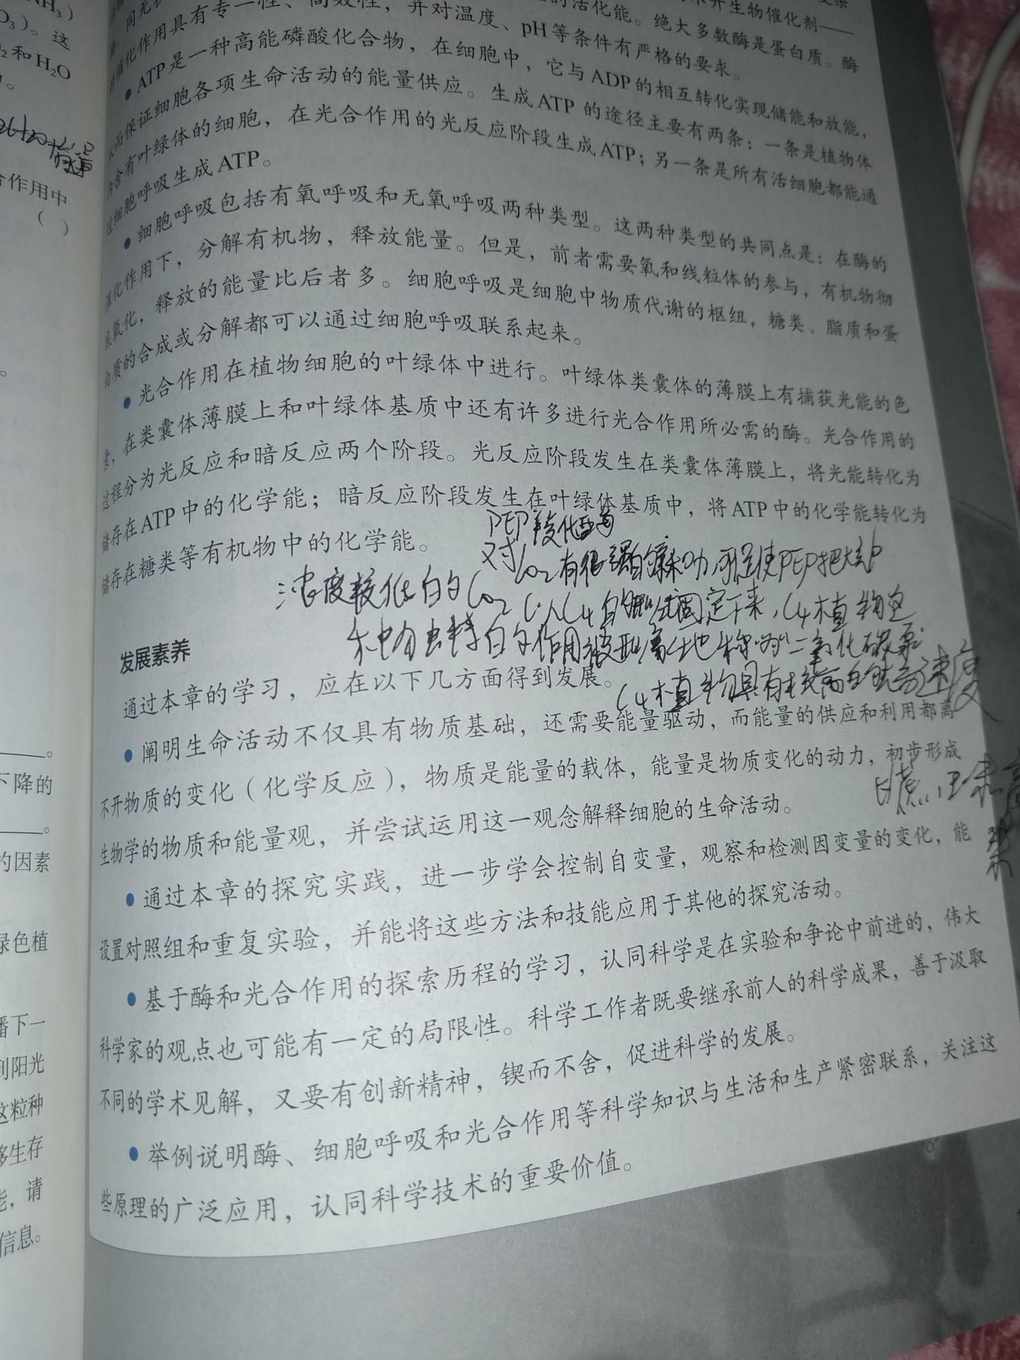 的活化能。绝大多数酶是蛋白质。酶
化作用具有专一性、高效性，并对温度、pH等条件有严格的要求。
• ATP是一种高能磷酸化合物，在细胞中，它与ADP的相互转化实现储能和放能，
保证细胞各项生命活动的能量供应。生成ATP 的途径主要有两条：一条是植物体
含有叶绿体的细胞，在光合作用的光反应阶段生成ATP；另一条是所有活细胞都能通
细胞呼吸生成ATP。
• 细胞呼吸包括有氧呼吸和无氧呼吸两种类型。这两种类型的共同点是：在酶的
化作用下，分解有机物，释放能量。但是，前者需要氧和线粒体的参与，有机物彻
氧化，释放的能量比后者多。细胞呼吸是细胞中物质代谢的枢纽，糖类、脂质和蛋
质的合成或分解都可以通过细胞呼吸联系起来。
• 光合作用在植物细胞的叶绿体中进行。叶绿体类囊体的薄膜上有捕获光能的色
，在类囊体薄膜上和叶绿体基质中还有许多进行光合作用所必需的酶。光合作用的
过程分为光反应和暗反应两个阶段。光反应阶段发生在类囊体薄膜上，将光能转化为
储存在ATP中的化学能；暗反应阶段发生在叶绿体基质中，将ATP中的化学能转化为
储存在糖类等有机物中的化学能。
PEP羧化酶
对CO2有很强的亲和力,可促使PEP把大
浓度较低的CO2
固定下来,C4植物
作用被形象地称为"二氧化碳泵
C4植物具有较高
发展素养
通过本章的学习，应在以下几方面得到发展。
• 阐明生命活动不仅具有物质基础，还需要能量驱动，而能量的供应和利用都离
不开物质的变化（化学反应），物质是能量的载体，能量是物质变化的动力，初步形成
生物学的物质和能量观，并尝试运用这一观念解释细胞的生命活动。
• 通过本章的探究实践，进一步学会控制自变量，观察和检测因变量的变化，能
设置对照组和重复实验，并能将这些方法和技能应用于其他的探究活动。
• 基于酶和光合作用的探索历程的学习，认同科学是在实验和争论中前进的，伟大
科学家的观点也可能有一定的局限性。科学工作者既要继承前人的科学成果，善于汲取
不同的学术见解，又要有创新精神，锲而不舍，促进科学的发展。
• 举例说明酶、细胞呼吸和光合作用等科学知识与生活和生产紧密联系，关注这
些原理的广泛应用，认同科学技术的重要价值。
和H₂O
作用中
（ ）
下降的
的因素
绿色植
播下一
到阳光
这粒种
够生存
能，请
信息。